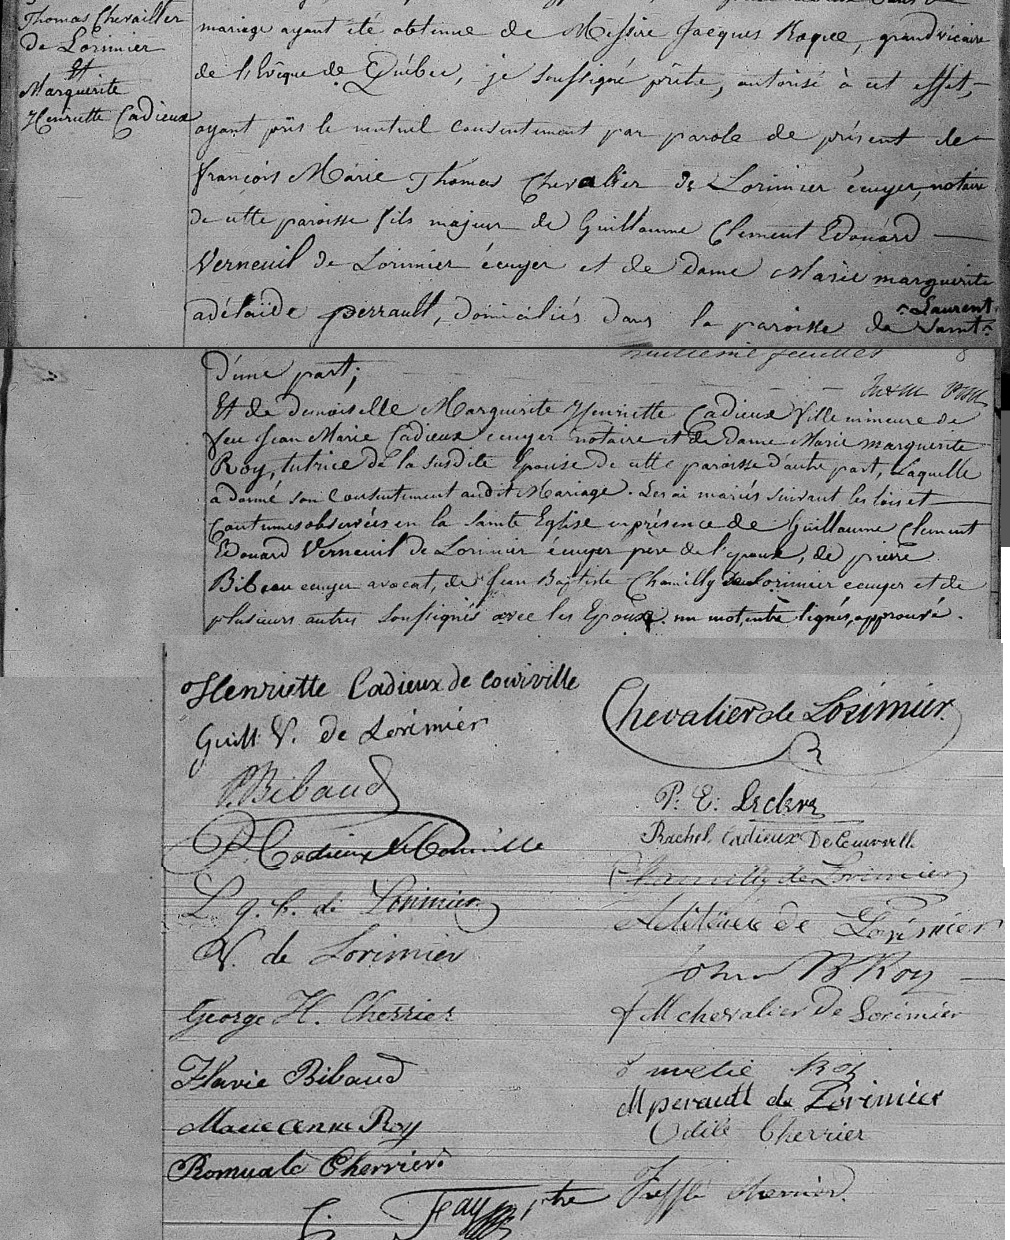 Thomas Chevallier
de Lorimier
Et
Marguerite
Henriette Cadieux
mariage ayant été obtenue de Messire Jacques Roque, grand vicaire
de l'Evêque de Québec, je soussigné prêtre, autorisé à cet effet,
ayant pris le mutuel consentement par parole de présent de
françois Marie Thomas Chevalier de Lorimier écuyer, notaire
de cette paroisse fils majeur de Guillaume Clement Edouard
Verneuil de Lorimier écuyer et de dame Marie marguerite
adélaïde perrault, domiciliés dans la paroisse de Saint
Laurent
huitieme feuillet 8
d'une part;
Et de demoiselle Marguerite Henriette Cadieux fille mineure de
feu Jean Marie Cadieux ecuyer notaire et de dame Marie marguerite
Roy, tutrice de la susdite Epouse de cette paroisse d'autre part, Laquelle
a donné son Consentement audit Mariage. Les ai mariés suivant les lois et
Coutumes observées en la Sainte Eglise en présence de Guillaume Clement
Edouard Verneuil de Lorimier écuyer père de l'epoux, de pierre
Bibeau ecuyer avocat, de Jean Baptiste Chamilly de Lorimier ecuyer et de
plusieurs autres Soussignés avec les Epoux. un mot entre lignes, approuvé.
Henriette Cadieux de Courville
Chevalier de Lorimier
Guill V. de Lorimier
P. Bibaud
P. E. Leclere
Rachel Cadieux De Courville
P. Cadieux de Courville
Chamilly de Lorimier
L. g. h. de Lorimier
de Lorimier
V. de Lorimier
John B. Roy
George H. Cherrier
M chevalier De Lorimier
Flavie Bibaud
Emelie Roy
M perault de Lorimier
Marie anne Roy
Odile Cherrier
Romuald Cherrier
Fay, ptre
Treffle cherrier